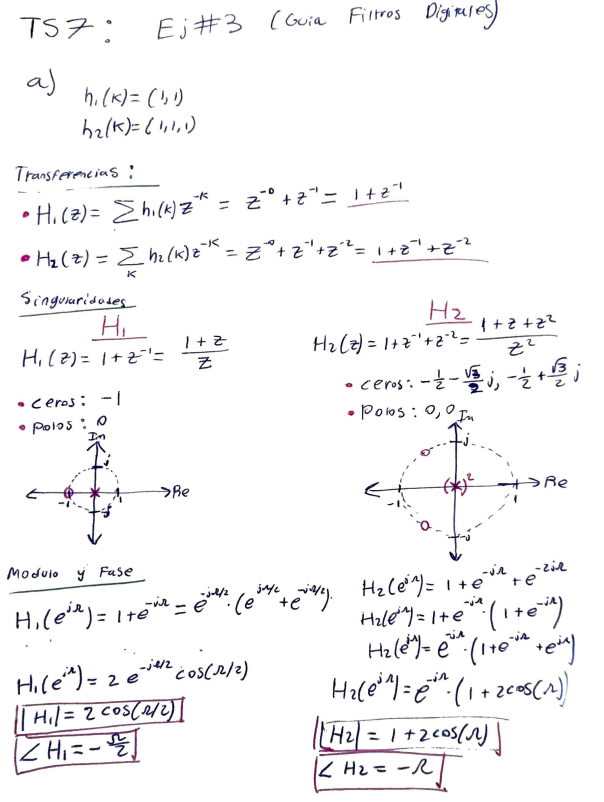 TS7: Ej#3 (Guia Filtros Digitales)
a)
h₁(k)=(1,1)
h₂(k)=(1,1,1)
Transferencias:
• H₁(z) = ∑h₁(k)z⁻ᵏ = z⁻⁰ + z⁻¹ = 1+z⁻¹
• H₂(z) = ∑ₖ h₂(k)z⁻ᵏ = z⁻⁰ + z⁻¹ + z⁻² = 1+z⁻¹+z⁻²
Singularidades
H₁
H₁(z) = 1+z⁻¹ = (1+z)/z
• ceros: -1
• polos: 0
Im
j
-1
1
Re
-j
H₂
H₂(z) = 1+z⁻¹+z⁻² = (1+z+z²)/z²
• ceros: -1/2 - √3/2 j, -1/2 + √3/2 j
• polos: 0,0
Im
j
( )²
-1
1
Re
-j
Modulo y Fase
H₁(e^{jΩ}) = 1+e^{-jΩ} = e^{-jΩ/2}·(e^{jΩ/2}+e^{-jΩ/2})
H₁(e^{jΩ}) = 2 e^{-jΩ/2} cos(Ω/2)
|H₁| = 2 cos(Ω/2)
∠H₁ = -Ω/2
H₂(e^{jΩ}) = 1+e^{-jΩ}+e^{-2jΩ}
H₂(e^{jΩ}) = 1+e^{-jΩ}·(1+e^{-jΩ})
H₂(e^{jΩ}) = e^{-jΩ}·(1+e^{-jΩ}+e^{jΩ})
H₂(e^{jΩ}) = e^{-jΩ}·(1+2cos(Ω))
|H₂| = 1+2cos(Ω)
∠H₂ = -Ω